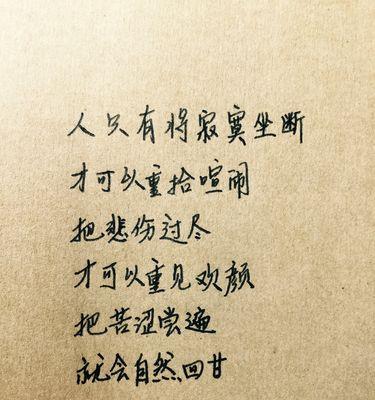 人只有将寂寞坐断
才可以重拾喧闹
把悲伤过尽
才可以重见欢颜
把苦涩尝遍
就会自然回甘